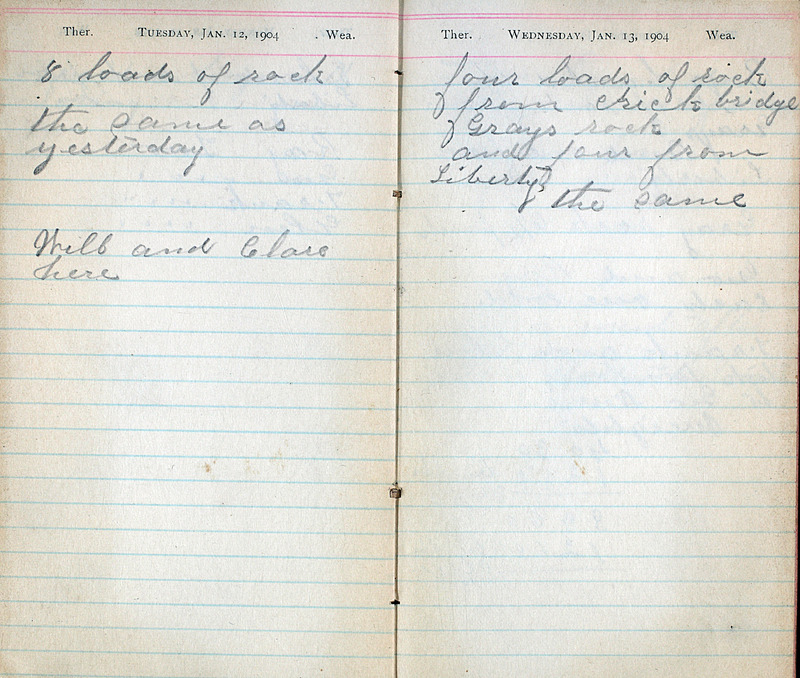 Ther. TUESDAY, JAN. 12, 1904 . Wea.
8 loads of rock
the same as
yesterday
Will and Clare
here
Ther. WEDNESDAY, JAN. 13, 1904 Wea.
four loads of rock
from crick bridge
Grays rock
and four from
Liberty
the same